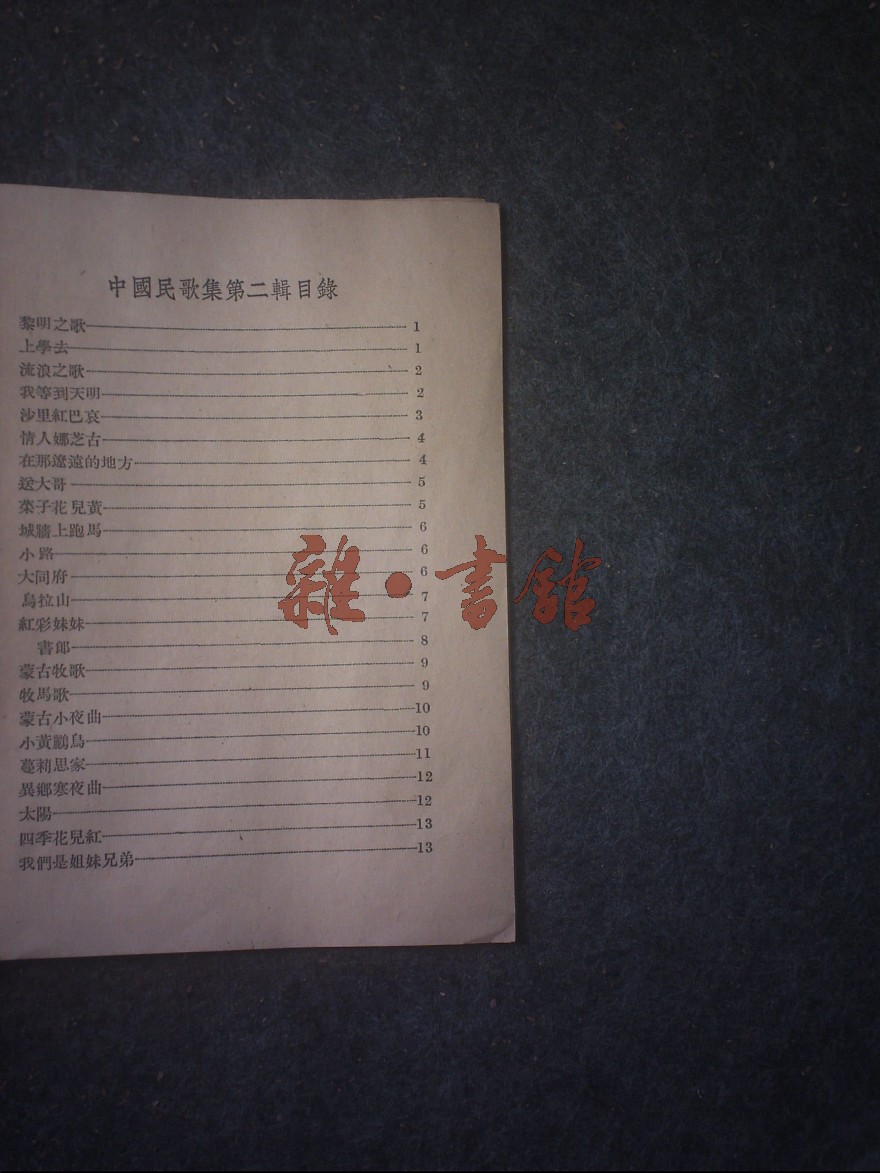 中國民歌集第二輯目錄
黎明之歌 1
上學去 1
流浪之歌 2
我等到天明 2
沙里紅巴哀 3
情人娜芝古 4
在那遼遠的地方 4
送大哥 5
菜子花兒黃 5
城牆上跑馬 6
小路 6
大同府 6
烏拉山 7
紅彩妹妹 7
書郎 8
蒙古牧歌 9
牧馬歌 9
蒙古小夜曲 10
小黃鸝鳥 10
蔓莉思家 11
異鄉寒夜曲 12
太陽 12
四季花兒紅 13
我們是姐妹兄弟 13
雜·書館